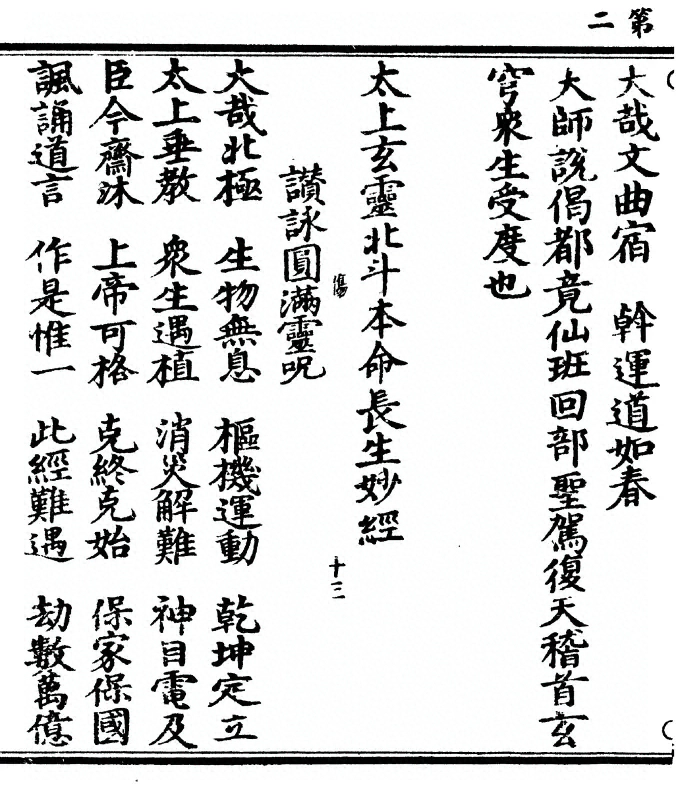 第二
大哉文曲宿　斡運道如春
大師說偈都竟仙班回部聖駕復天稽首玄
穹衆生受度也
太上玄靈北斗本命長生妙經
傷　十三
讚詠圓滿靈呪
大哉北極　生物無息　樞機運動　乾坤定立
太上垂教　衆生遇植　消災解難　神目電及
臣今齋沐　上帝可格　克終克始　保家保國
諷誦道言　作是惟一　此經難遇　劫數萬億